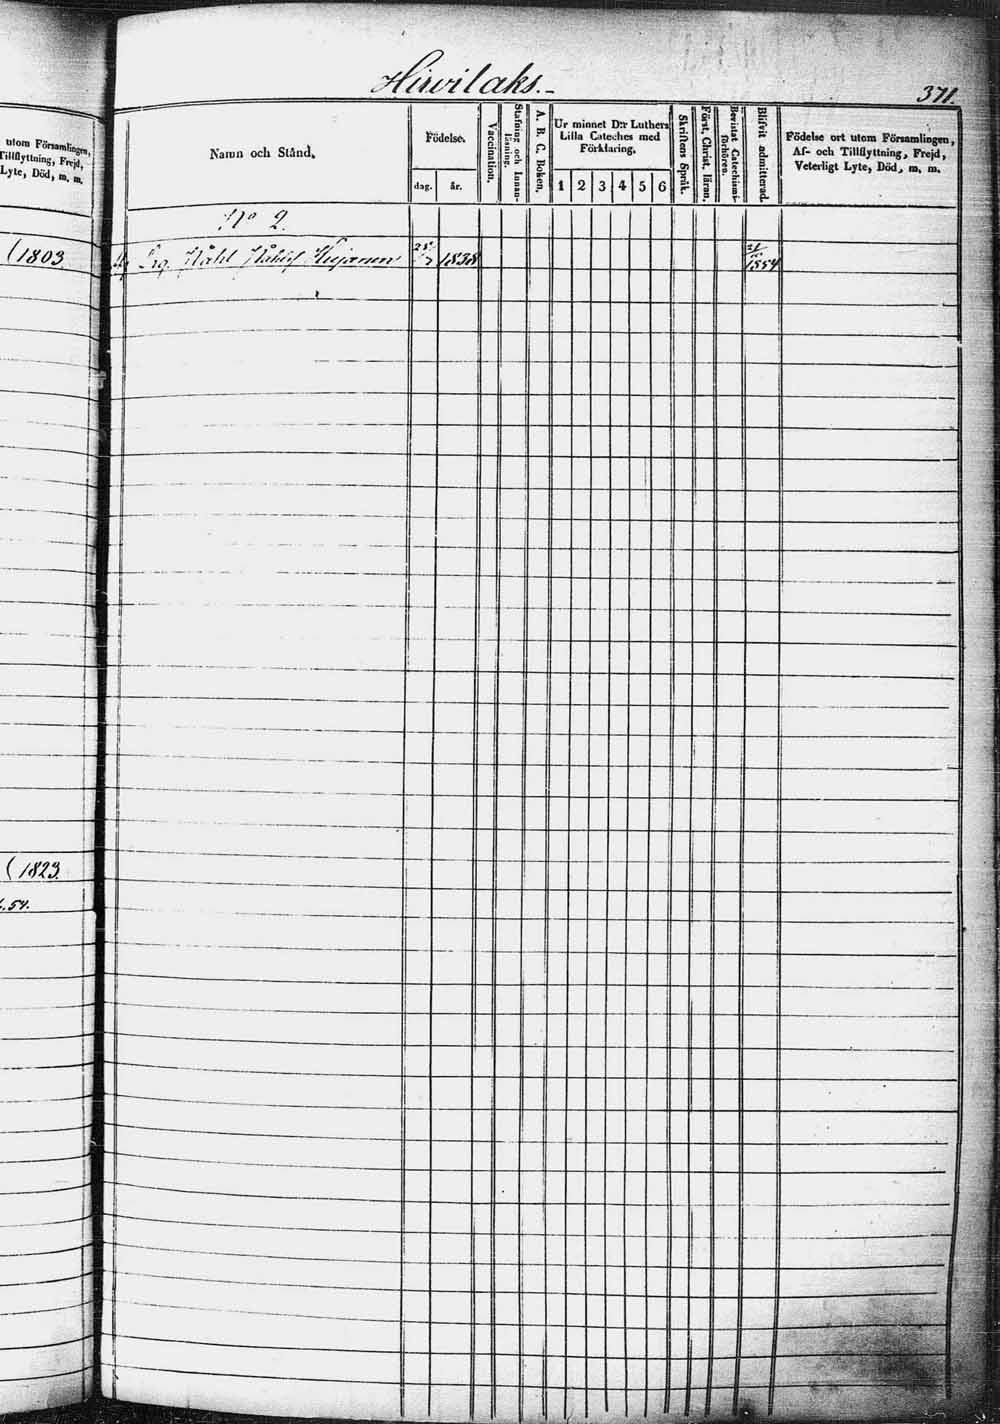 Hirvilaks.-
371.
utom Församlingen,
Tillflyttning, Frejd,
Lyte, Död, m. m.
(1803.
(1823.
.54.
Namn och Stånd.
Födelse.
dag. år.
Vaccination.
Stafning och Innan-
läsning.
A. B. C. Boken.
Ur minnet D:r Luthers
Lilla Cateches med
Förklaring.
1 2 3 4 5 6
Skriftens Språk.
Först. Christ. läran.
Bevistat Catechismi-
förhören.
Blifvit admitterad.
Födelse ort utom Församlingen,
Af- och Tillflyttning, Frejd,
Veterligt Lyte, Död, m. m.
No 2.
1838 1854